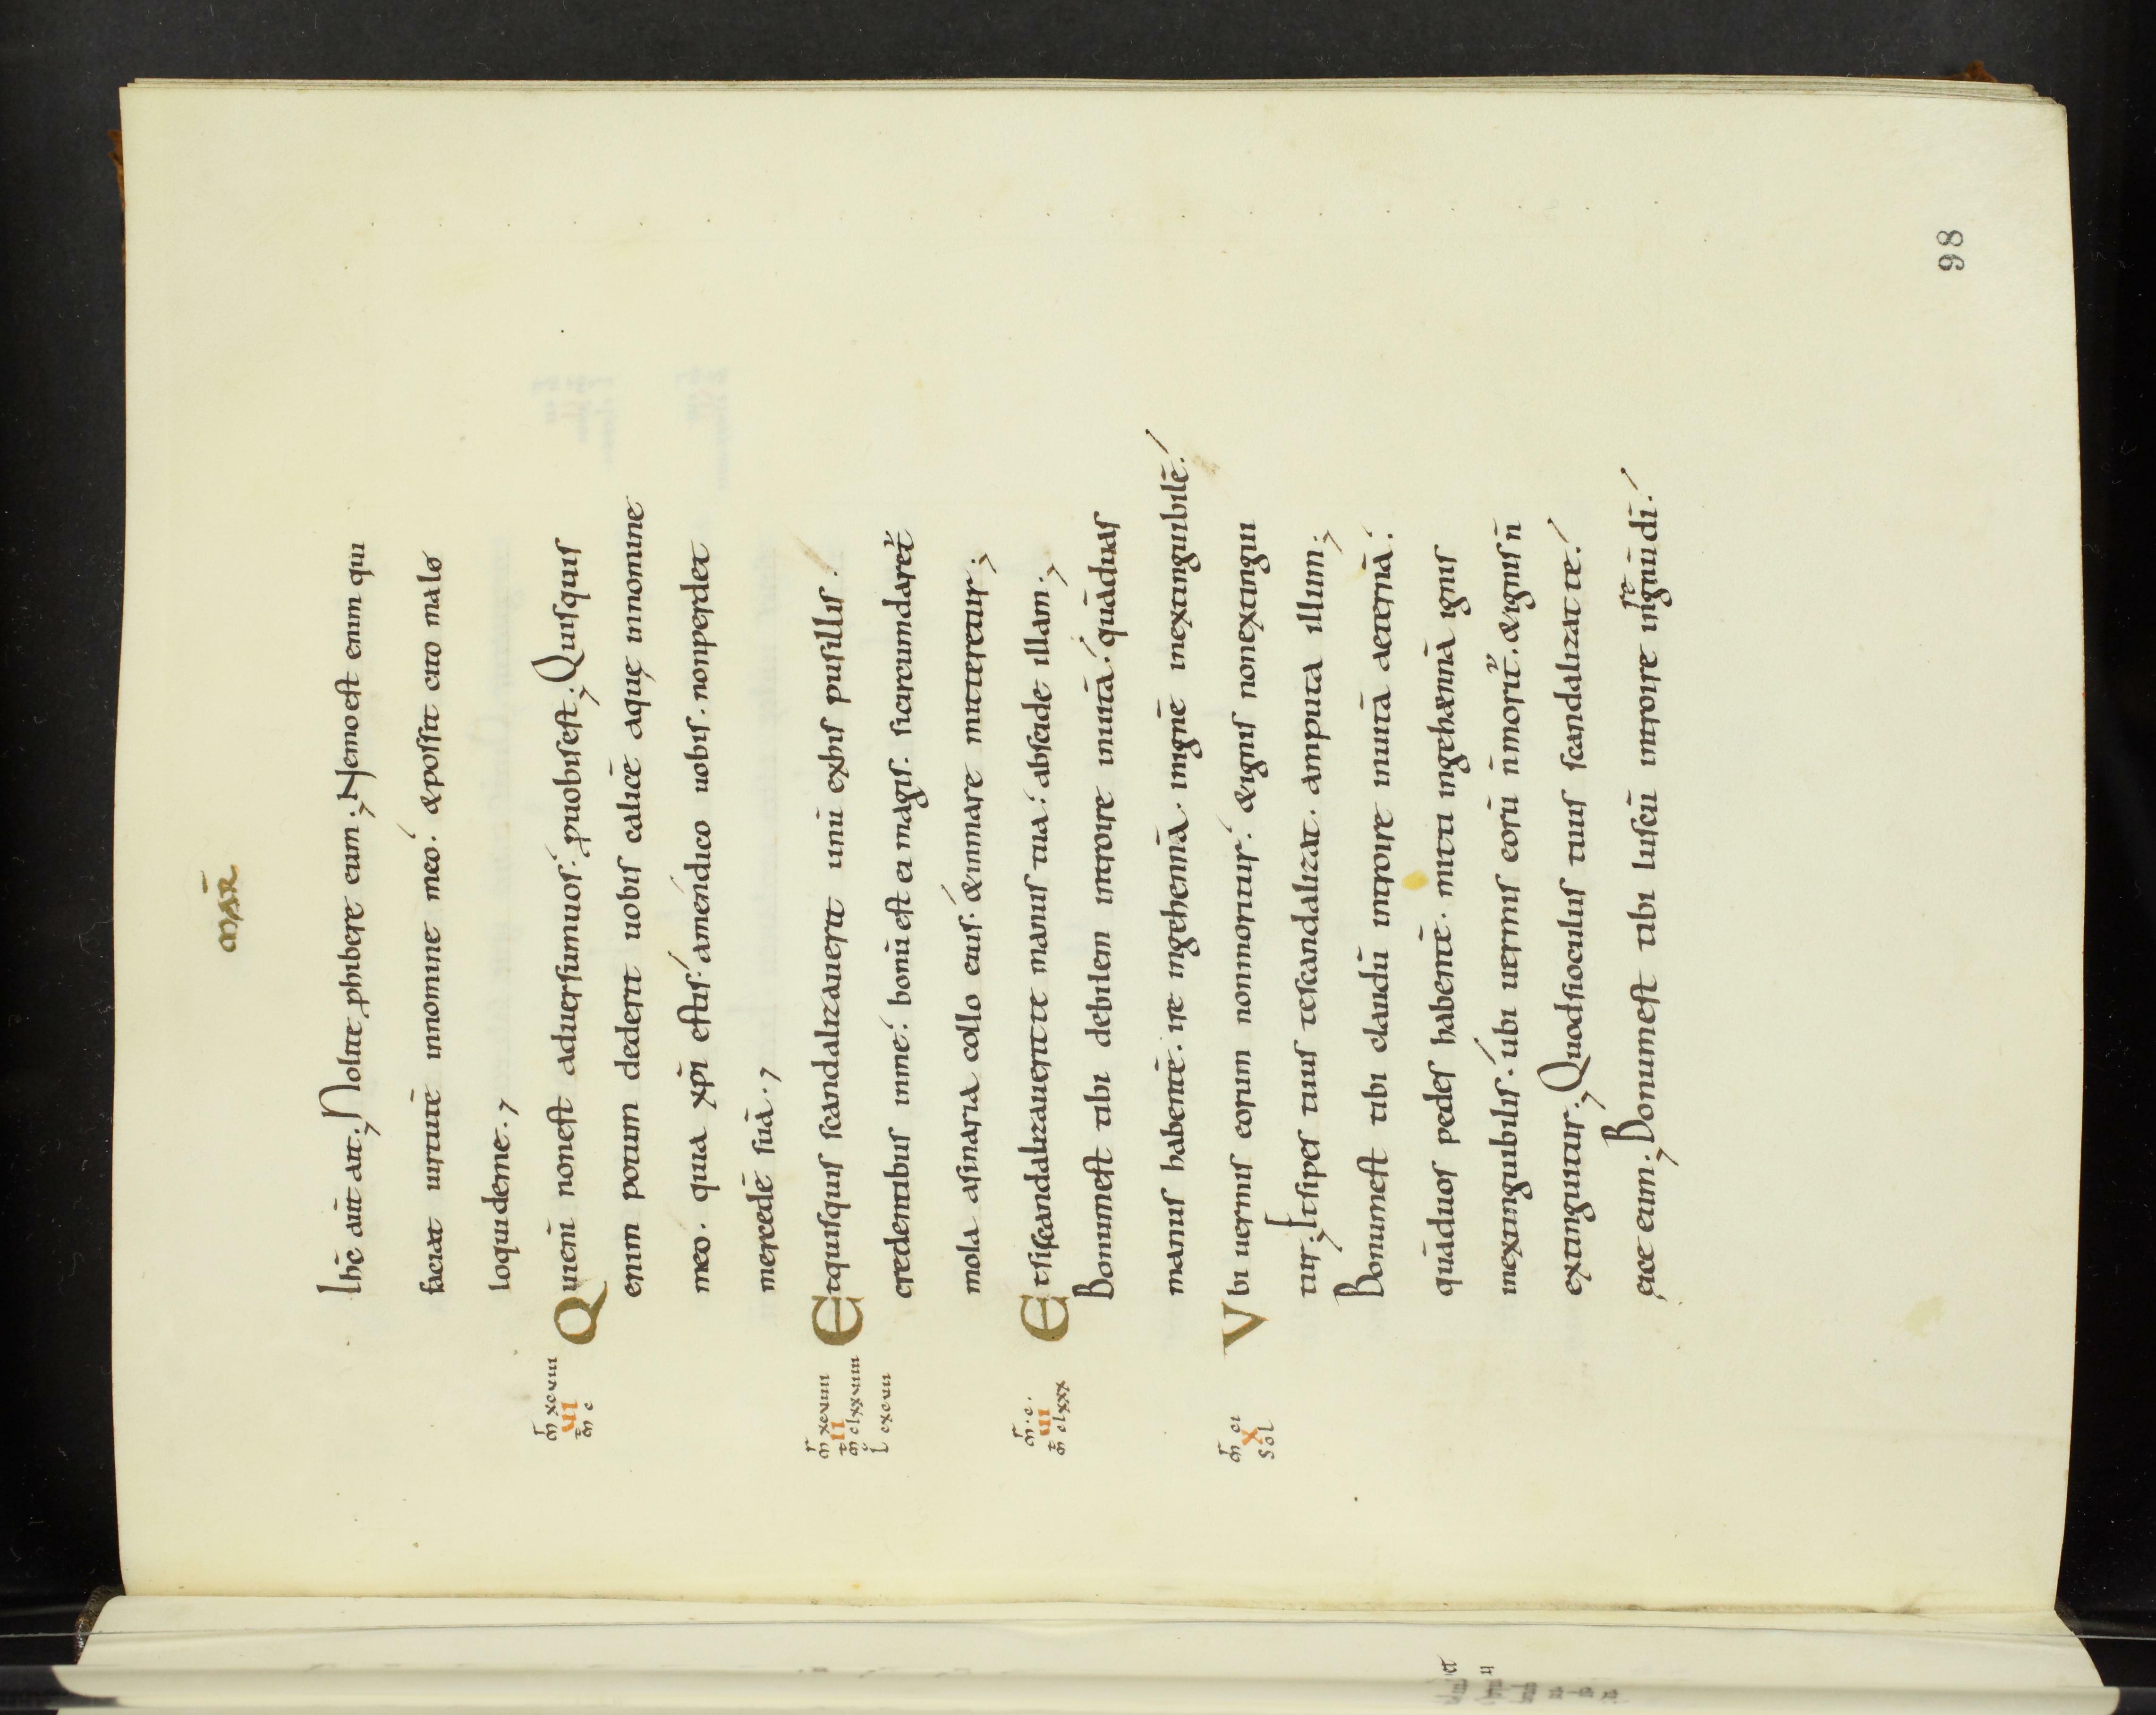 MAR̄
Ihc̄ aūt ait., Nolite ꝓhibere eum., Nemo est enim qui
faciat uirtutē innomine meo. &possit cito malo
loqui deme.,
Quieni nonest aduersumuos. ꝓuobisest., Quisquis
enim potum dederit uobis calicē aquę innomine
meo. quia xp̄i estis. amendico uobis. nonperdet
mercedē suā.,
Etquisquis scandalizauerit unū exhis pusillis.
credentibus inme. bonū est ei magis. sicircumdaret᷑
mola asinaria collo eius. &inmare mitteretur.,
Etsiscandalizauerit te manus tua. abscide illam.,
Bonumest tibi debilem introire inuitā. quāduas
manus habentē. ire ingehennā. inignē inextinguibilē.
Vbi uermis eorum nonmoritur. &ignis nonextingui
tur., Etsipes tuus tescandalizat. amputa illum.,
Bonumest tibi claudū introire inuitā aeternā.
quāduos pedes habentē. mitti ingehænnā ignis
inextinguibilis. ubi uermis eorū n̄ morit᷑. &ignis n̄
extinguitur., Quodsioculus tuus scandalizat te.
eice eum., Bonumest tibi luscū introire inregnū dī.
m̄r xcviii
VI
m̄t c
m̄r xcviiii
II
m̄t clxxviiii
l cxcvii
m̄r .c.
VI
m̄t clxxx
m̄r ci
X
Sol
98